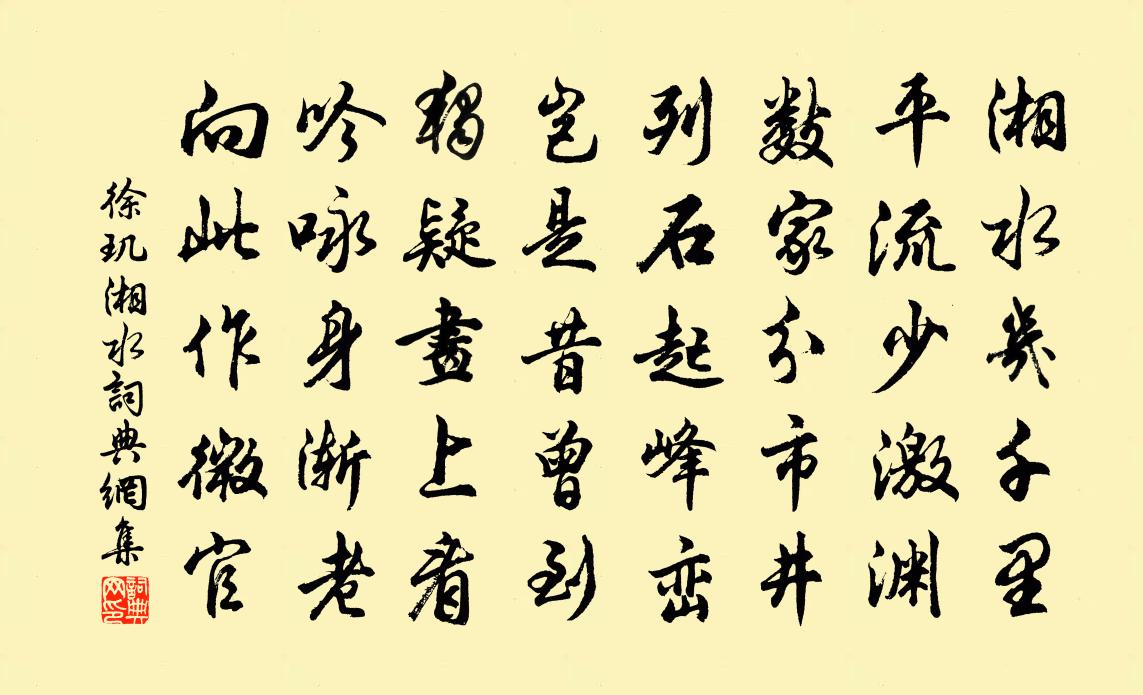 湘水幾千里
平流少激渊
數家分市井
列石起峰巒
岂是昔曾到
獨疑畫上看
吟咏身漸老
向此作微官
徐玑湘水詞典網集
詞典
网印